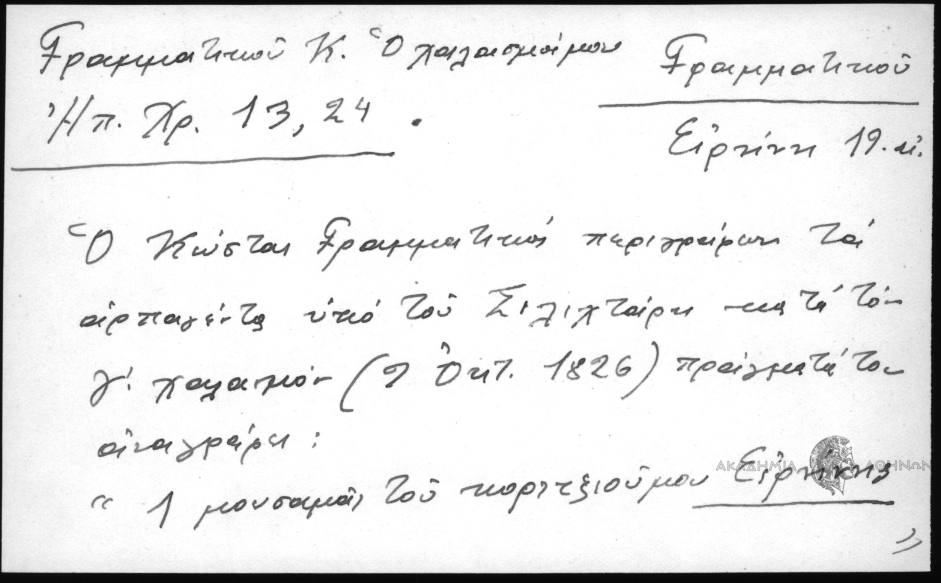 Γραμματικοῦ Κ. Ὁ χαλασμός μου
Ἠπ. Χρ. 13, 24.
Γραμματικοῦ
Εἰρήνη 19. αἰ.
Ὁ Κώστας Γραμματικός περιγράφων τά
ἁρπαγέντα ὑπό του Σιλιχτάρη κατά τόν
γ΄. χαλασμόν (2 Ὀκτ. 1826) πράγματά του
ἀναγράφει:
" 1 μουσαμᾶς τοῦ κοριτζιοῦ μου Εἰρήνης "
ΑΚΑΔΗΜΙΑ ΑΘΗΝΩΝ